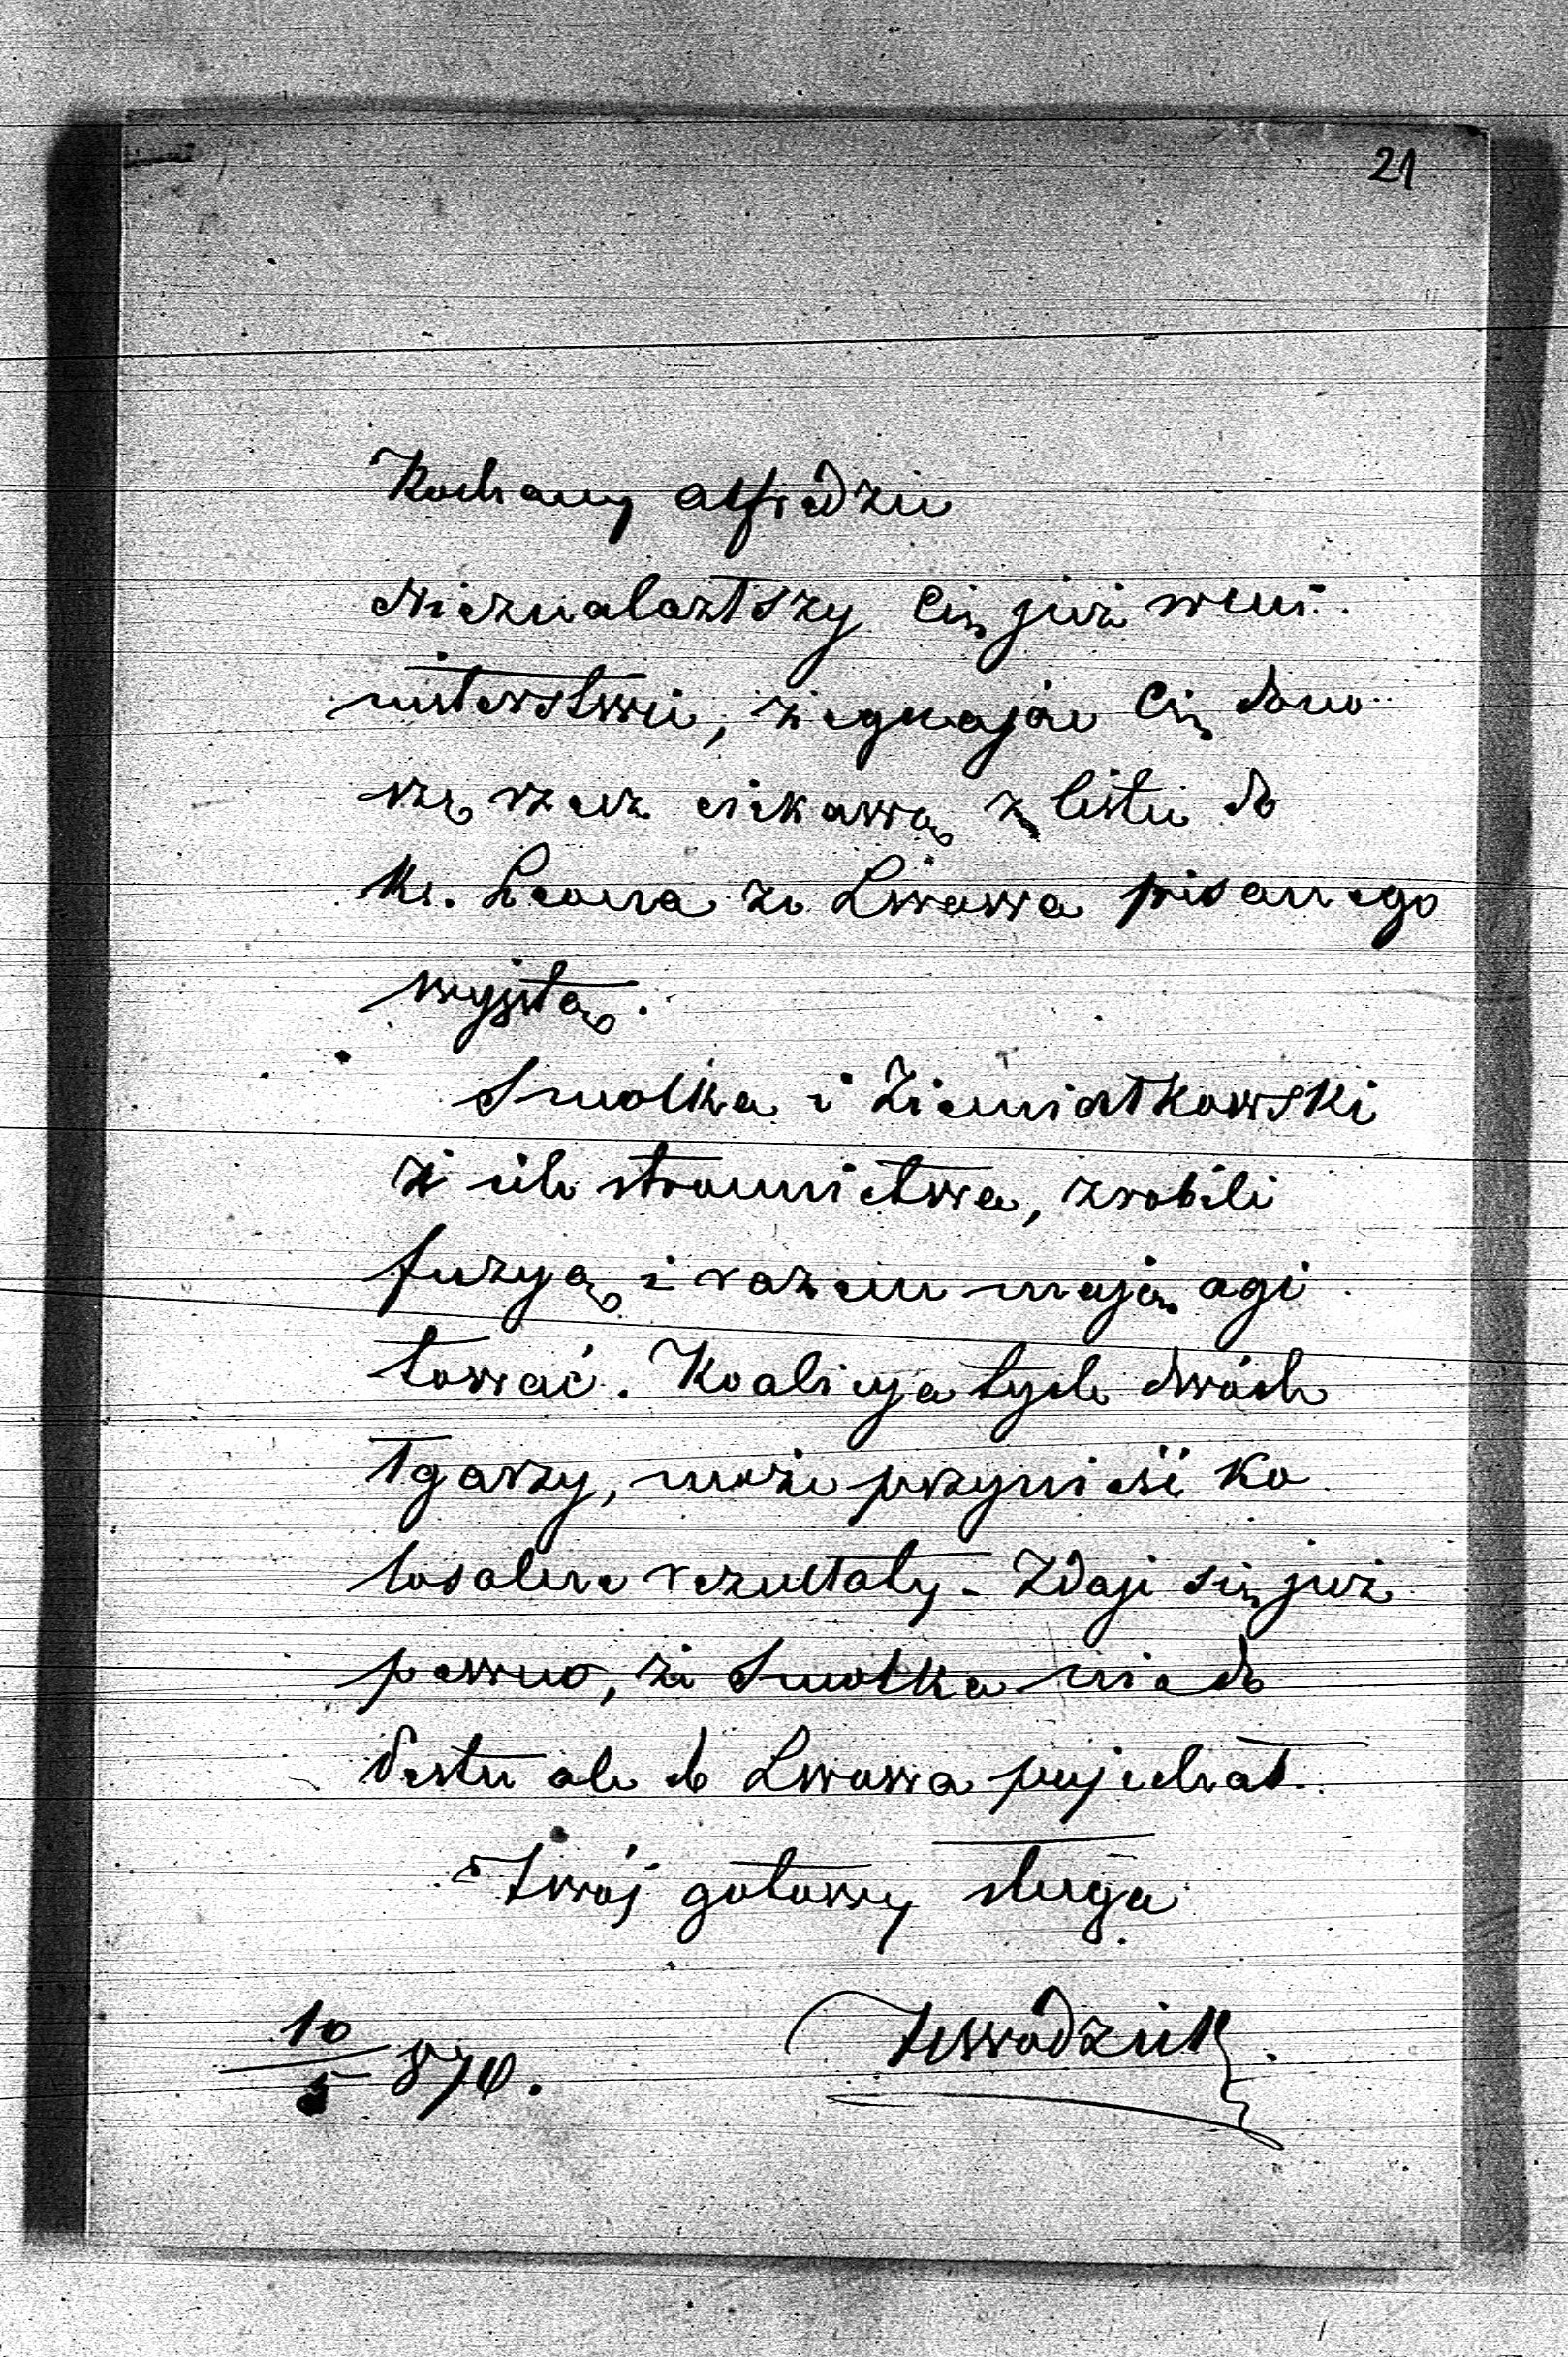 21
Kochany Alfredzie
Nieznalazłszy Cię już w mi
nisterstwie, żegnając Cię dono
szę rzecz ciekawą z listu do
ks. Leona ze Lwowa pisanego
wyjętą.
Smolka i Ziemiałkowski
i ich stronnictwa, zrobili
fuzyą i razem mają agi
tować. Koalicya tych dwóch
łgarzy, może przynieść ko
losalne rezultaty. Zdaje się już
pewno, że Smolka nie do
Pestu ale do Lwowa pojechał.
Twój gotowy sługa
10/5 870.